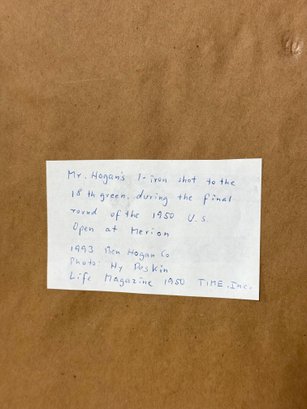 Mr. Hogan's 1-iron shot to the
18th green, during the final
round of the 1950 U.S.
Open at Merion
1993 Ben Hogan Co
Photo: Hy Peskin
Life Magazine 1950 TIME, Inc.